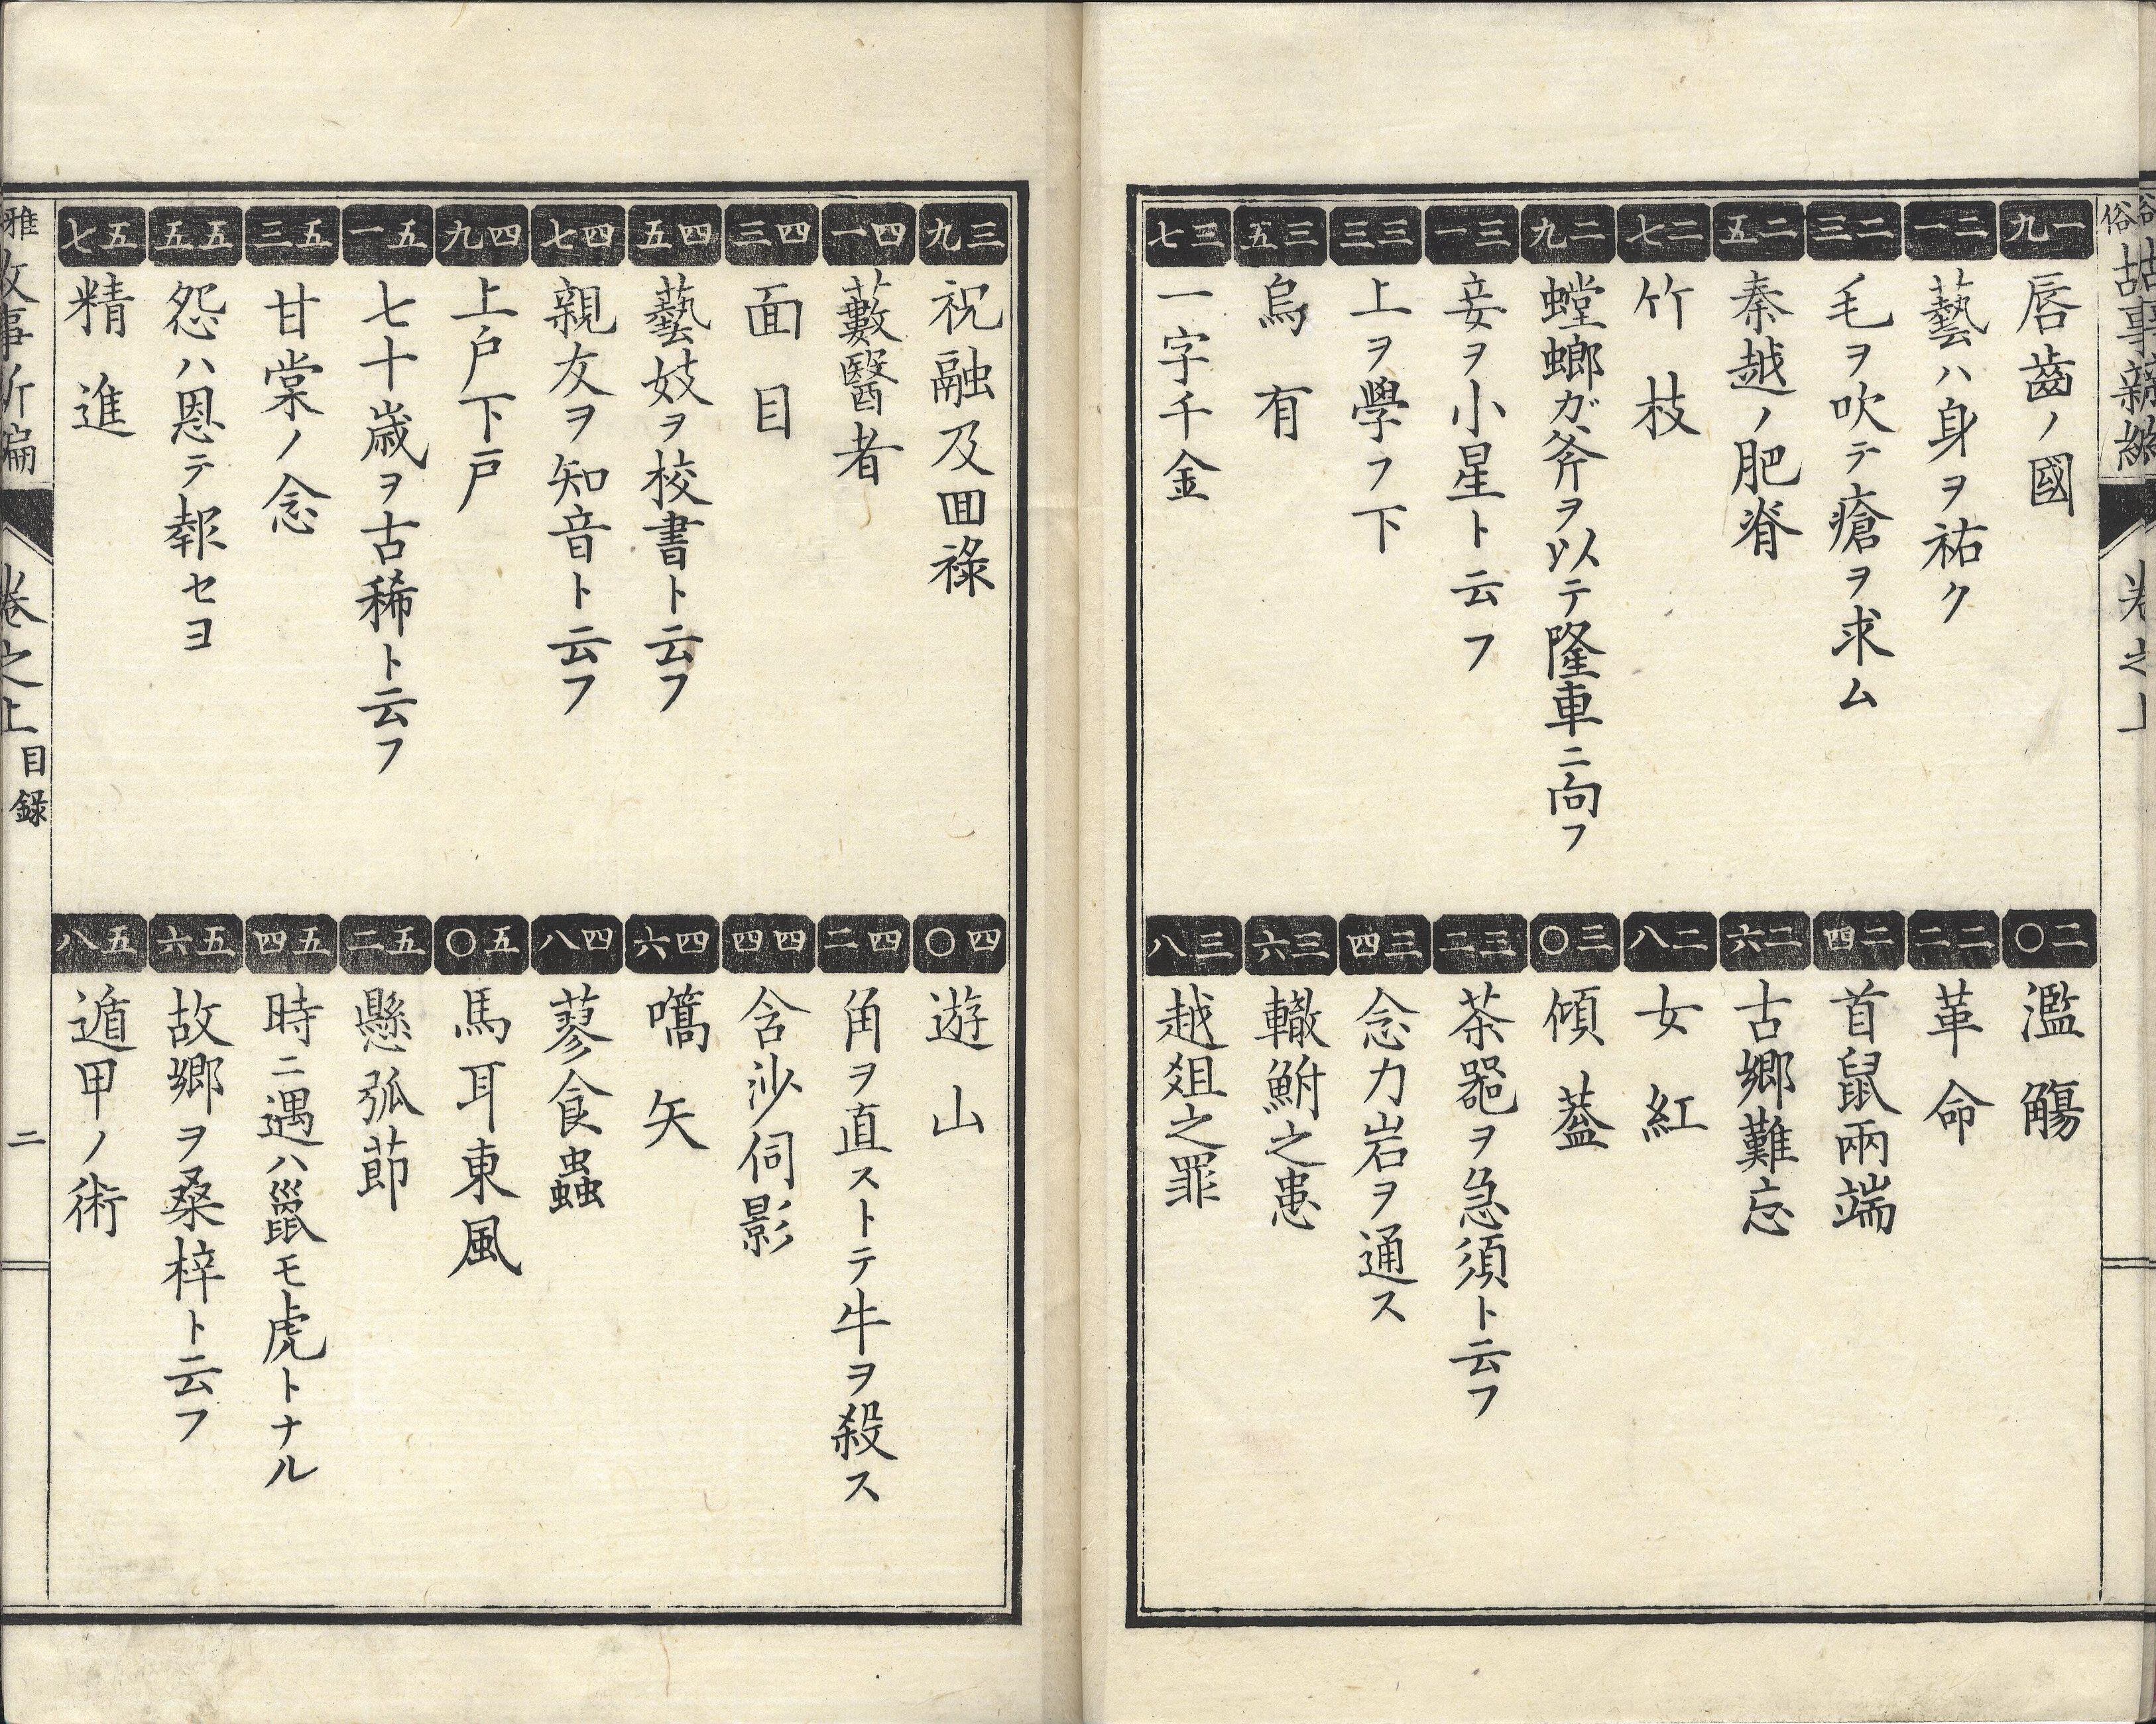 一九 唇齒ノ國
二〇 濫觴
二一 藝ハ身ヲ祐ク
二二 革命
二三 毛ヲ吹テ瘡ヲ求ム
二四 首鼠兩端
二五 秦越ノ肥脊
二六 古郷難忘
二七 竹枝
二八 女紅
二九 螳螂ガ斧ヲ以テ隆車ニ向フ
三〇 傾蓋
三一 妾ヲ小星ト云フ
三二 茶器ヲ急須ト云フ
三三 上ヲ學フ下
三四 念力岩ヲ通ス
三五 烏有
三六 轍鮒之患
三七 一字千金
三八 越爼之罪
三九 祝融及囬祿
四〇 遊山
四一 藪醫者
四二 角ヲ直ストテ牛ヲ殺ス
四三 面目
四四 含沙伺影
四五 藝妓ヲ校書ト云フ
四六 嚆矢
四七 親友ヲ知音ト云フ
四八 蓼食蟲
四九 上戸下戸
五〇 馬耳東風
五一 七十歳ヲ古稀ト云フ
五二 懸弧節
五三 甘棠ノ念
五四 時ニ遇ハ鼠モ虎トナル
五五 怨ハ恩テ報セヨ
五六 故郷ヲ桑梓ト云フ
五七 精進
五八 遁甲ノ術
雅 故事新編
卷之上 目録
二